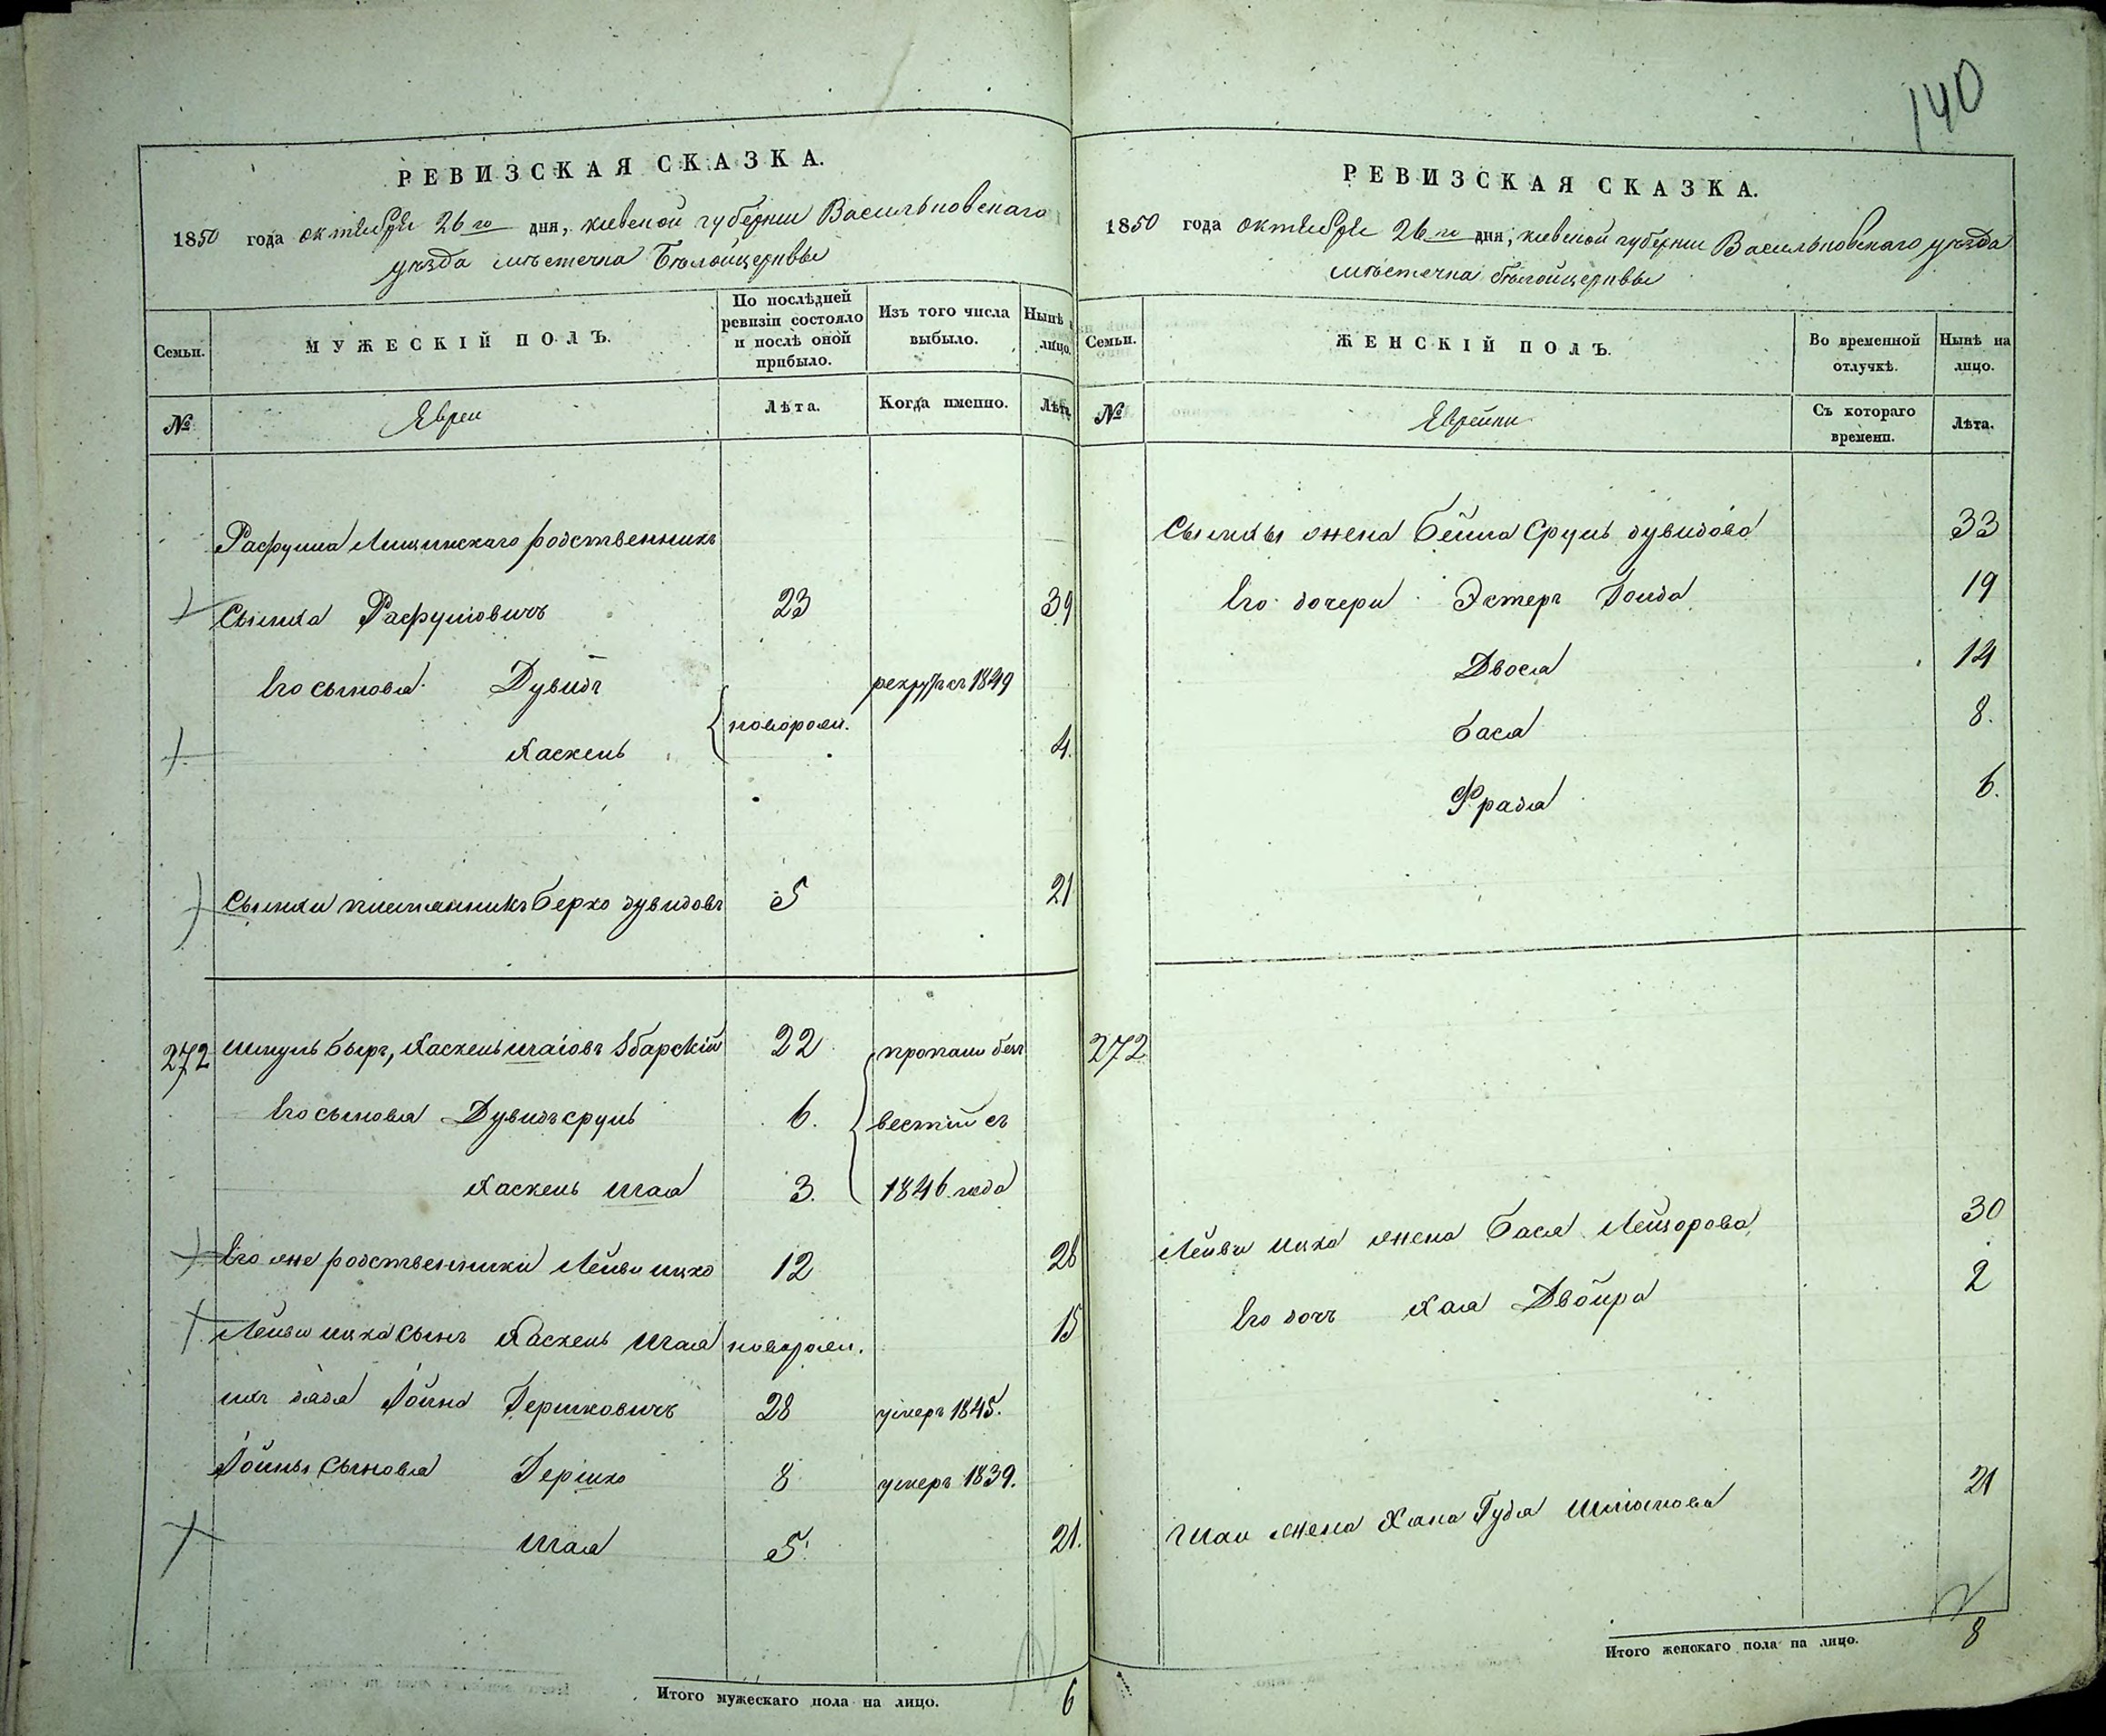 140
РЕВИЗСКАЯ СКАЗКА.
1850 года октября 26го дня, киевской губернии Васильковскаго
уезда местечка Белойцерквы
Семьи.
МУЖЕСКІЙ ПОЛЪ.
По послѣдней ревизіи состояло и послѣ оной прибыло.
Изъ того числа выбыло.
Нынѣ лицо.
№
Евреи
Лѣта.
Когда именно.
Лѣта
родственникъ
Сымха 23 39
Его сыновья Дувидъ рекрутъ съ 1849
Хаскель новорож. 4.
Сымхи племянникъ Берко Дувидовъ 5 21
272 Шмуль Беръ, Хаскель Шаіовъ Збарскій 22 пропали безъ
Его сыновья Дувидъ Сруль 6. вести съ
Хаскель Шая 3. 1846 года
Его же родственники Лейви Ицко 12 28
Лейви Ицка сынъ Хаскель Шая новорож. 15
ихъ дядя Іойна Гершковичъ 28 умеръ 1845.
Іойны сыновья Гершко 8 умеръ 1839.
Шая 5. 21.
Итого мужескаго пола на лицо. 6
РЕВИЗСКАЯ СКАЗКА.
1850 года октября 26го дня, киевской губернии Васильковскаго уезда
местечка Белойцерквы
Семьи.
ЖЕНСКІЙ ПОЛЪ.
Во временной отлучкѣ.
Нынѣ на лицо.
№
Еврейки
Съ котораго времени.
Лѣта.
Сымхы жена Бейла Сруль Дувидова 33
Его дочери Эстеръ 19
Двося 14
Бася 8.
Фрадя 6.
272
Лейви Ицка жена Бася Лейзорова 30
Его дочь Хая Двойра 2
Шаи жена Хана Гудя 21
Итого женскаго пола на лицо. 8